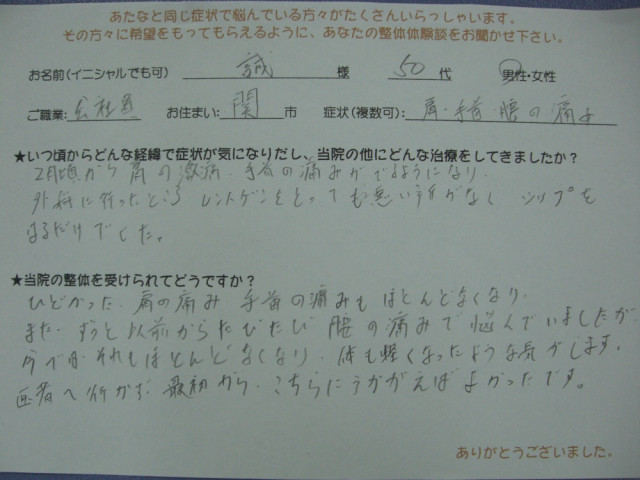 あたなと同じ症状で悩んでいる方々がたくさんいらっしゃいます。
その方々に希望をもってもらえるように、あなたの整体体験談をお聞かせ下さい。
お名前(イニシャルでも可) 誠 様 50代 男性・女性
ご職業: 会社員 お住まい: 関 市 症状(複数可): 肩・手首・腰の痛み
★いつ頃からどんな経緯で症状が気になりだし、当院の他にどんな治療をしてきましたか?
2月頃から肩の激痛、手首の痛みがでるようになり、
外科に行ったところ レントゲンをとっても悪い所がなく シップを
はるだけでした。
★当院の整体を受けられてどうですか?
ひどかった、肩の痛み 手首の痛みもほとんどなくなり、
また、ずっと以前からたびたび 腰の痛みで悩んでいましたが、
今では それもほとんどなくなり、体も軽くなったような気がします。
医者へ行かず 最初から、こちらにうかがえばよかったです。
ありがとうございました。